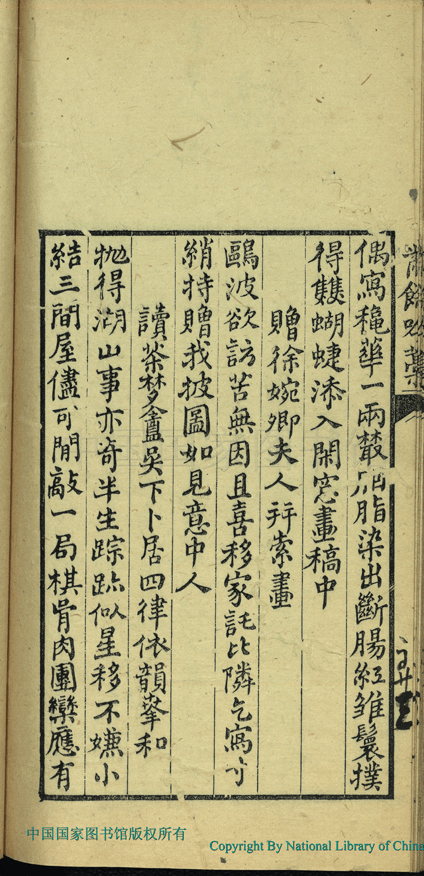 偶寫穠華一兩叢胭脂染出斷腸紅雛鬟撲
得雙蝴蜨添入閑窓畫稿中
贈徐婉卿夫人幷索畫
鷗波欲訪苦無因且喜移家託比隣乞寫寸
綃持贈我披圖如見意中人
讀茶夢盦吳下卜居四律依韻奉和
抛得湖山事亦奇半生踪跡似星移不嫌小
結三間屋儘可閒敲一局棋骨肉團欒應有
中国国家图书馆版权所有
Copyright By National Library of China